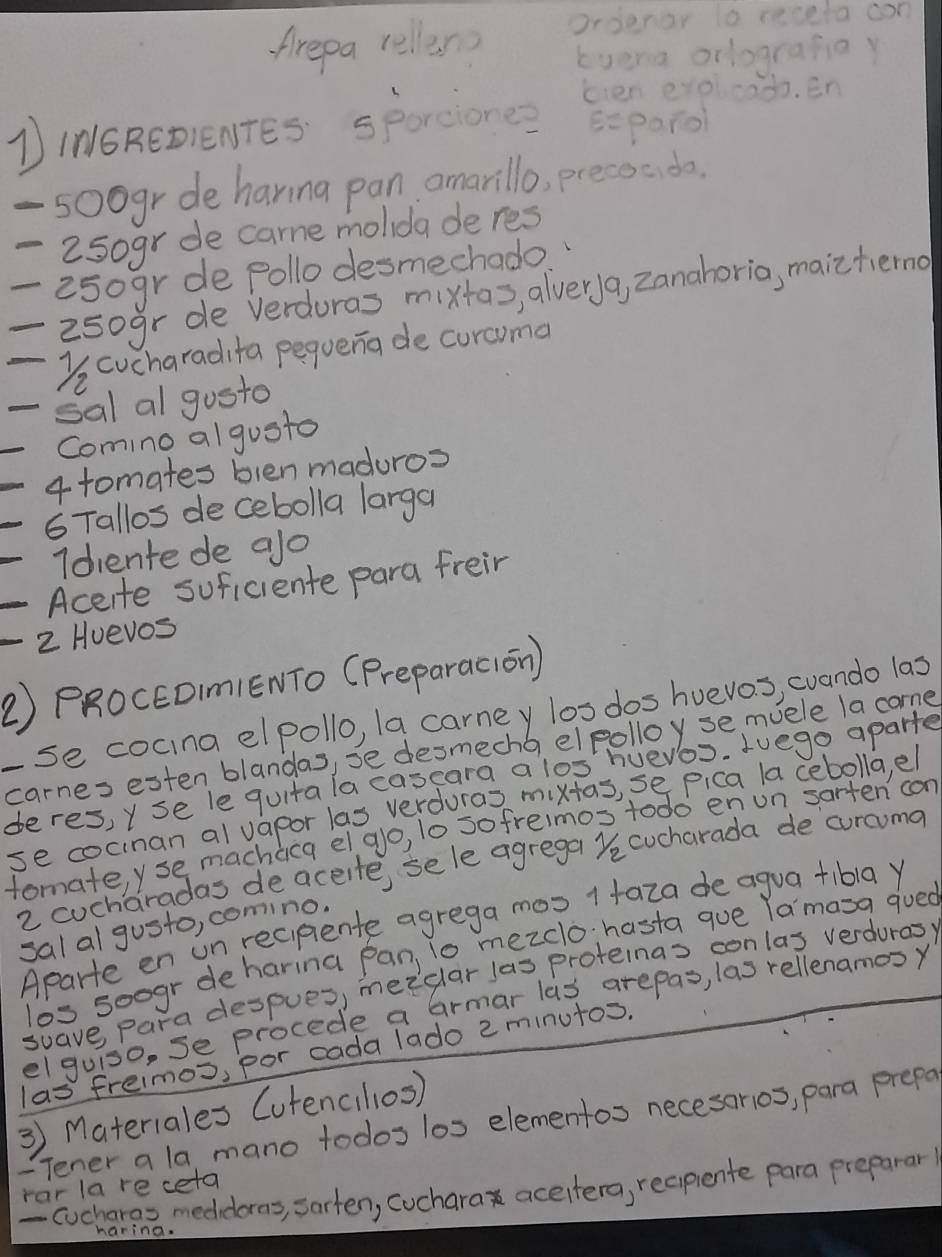 Arepa relleno
Ordenar la receta con
buena ortografia y
bien explicado. En
Español
1) INGREDIENTES 5 Porciones
- 500gr de harina pan amarillo, precocida.
- 250gr de carne molida de res
- 250gr de Pollo desmechado
- 250gr de Verduras mixtas, alverja, zanahoria, maiz tierno
- 1/2 cucharadita pequeña de curcuma
- Sal al gusto
- Comino al gusto
- 4 tomates bien maduros
- 6 Tallos de cebolla larga
- 1 diente de ajo
- Aceite suficiente para freir
- 2 Huevos
2) PROCEDIMIENTO (Preparación)
- Se cocina el pollo, la carne y los dos huevos, cuando las
carnes esten blandas, se desmecha el pollo y se muele la carne
de res, y se le quita la cascara a los huevos. Luego aparte
se cocinan al vapor las verduras mixtas, se pica la cebolla, el
tomate, y se machaca el ajo, lo sofreimos todo en un sarten con
2 cucharadas de aceite, se le agrega 1/2 cucharada de curcuma
sal al gusto, comino.
Aparte en un recipiente agrega mos 1 taza de agua tibia y
los 500gr de harina Pan, lo mezclo hasta que la masa qued
suave, para despues, mezclar las proteinas con las verduras y
el guiso. Se procede a armar las arepas, las rellenamos y
las freimos, por cada lado 2 minutos.
3) Materiales (utencilios)
- Tener a la mano todos los elementos necesarios, para prepa
rar la receta
- Cucharas medidoras, sarten, cuchara aceitera, recipiente para preparar l
harina.